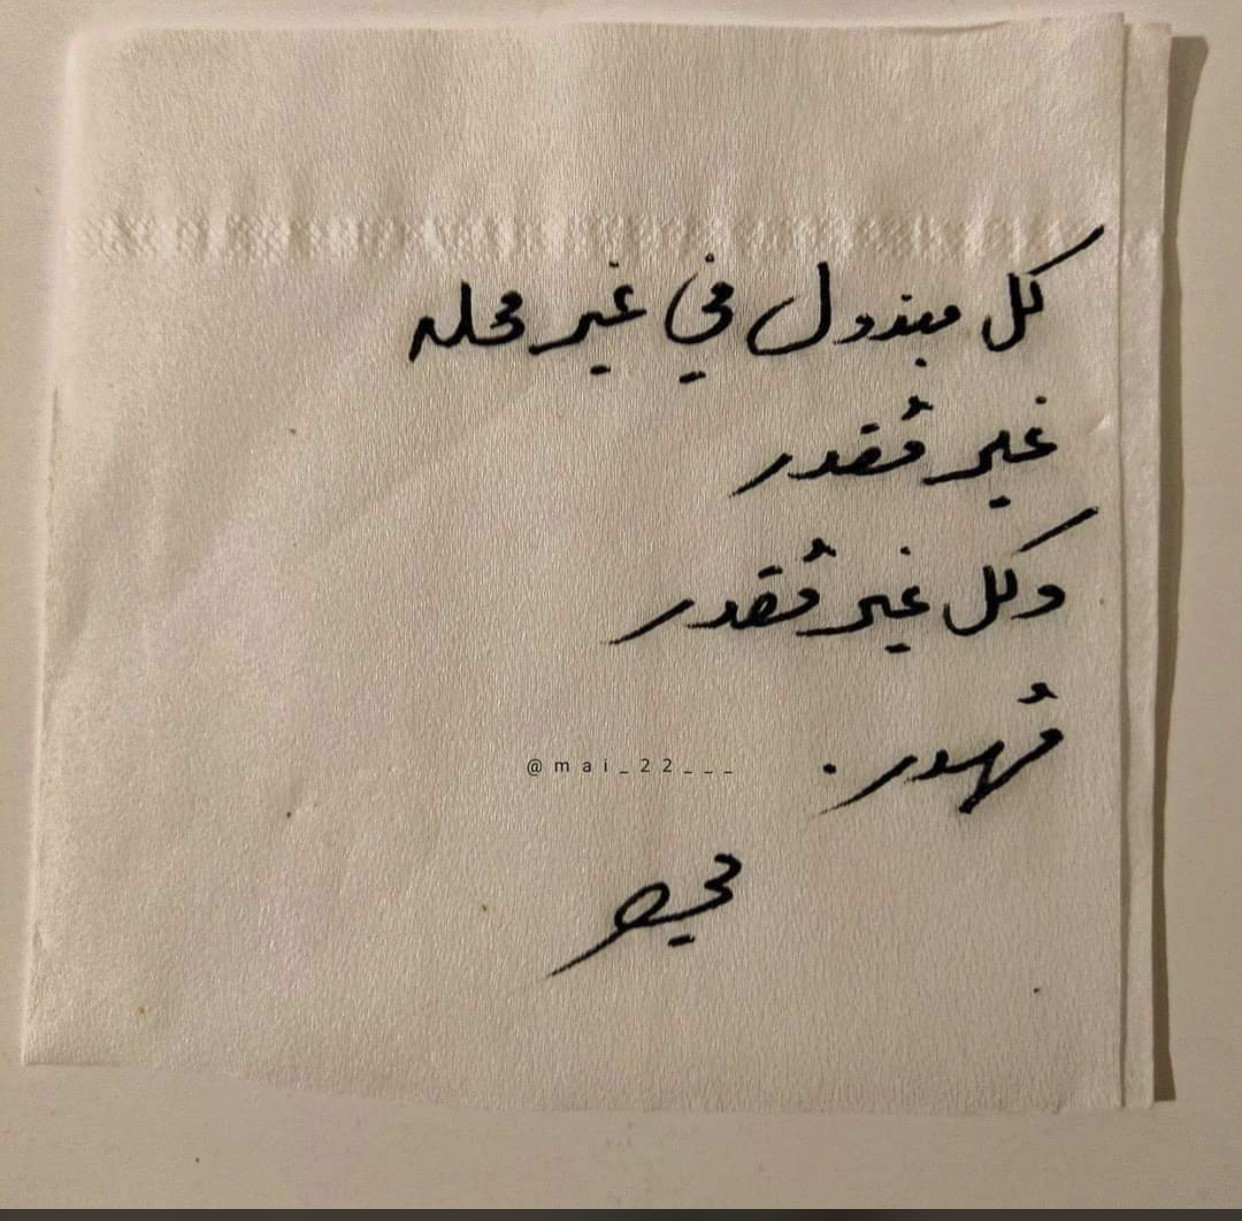 كل مبذول في غير محله
غير مُقدر
وكل غير مُقدر
مُهدر.
@mai_22___